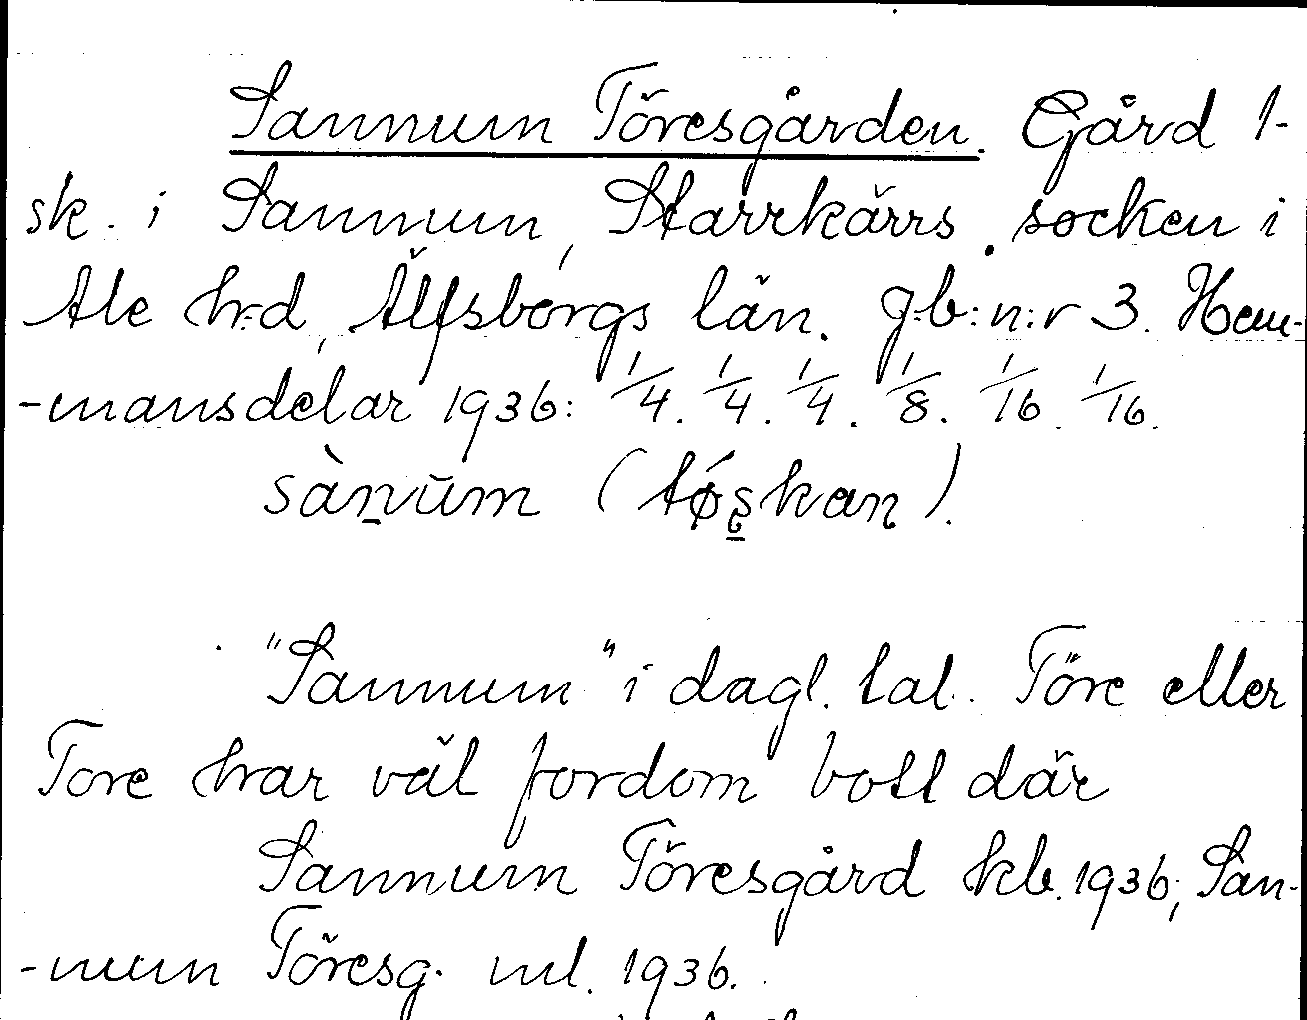 Sannum Töresgården. Gård 1-
sk. i Sannum, Starrkärrs socken i
Ale h:d, Älfsborgs län. g:b:n:r 3. Hem-
-mansdelar 1936: 1/4. 1/4. 1/4. 1/8. 1/16. 1/16.
sànum (tǿskan).
"Sannum" i dagl. tal. Töre eller
Tore har väl fordom bott där
Sannum Töresgård kb. 1936, San-
-num Töresg. ml. 1936.